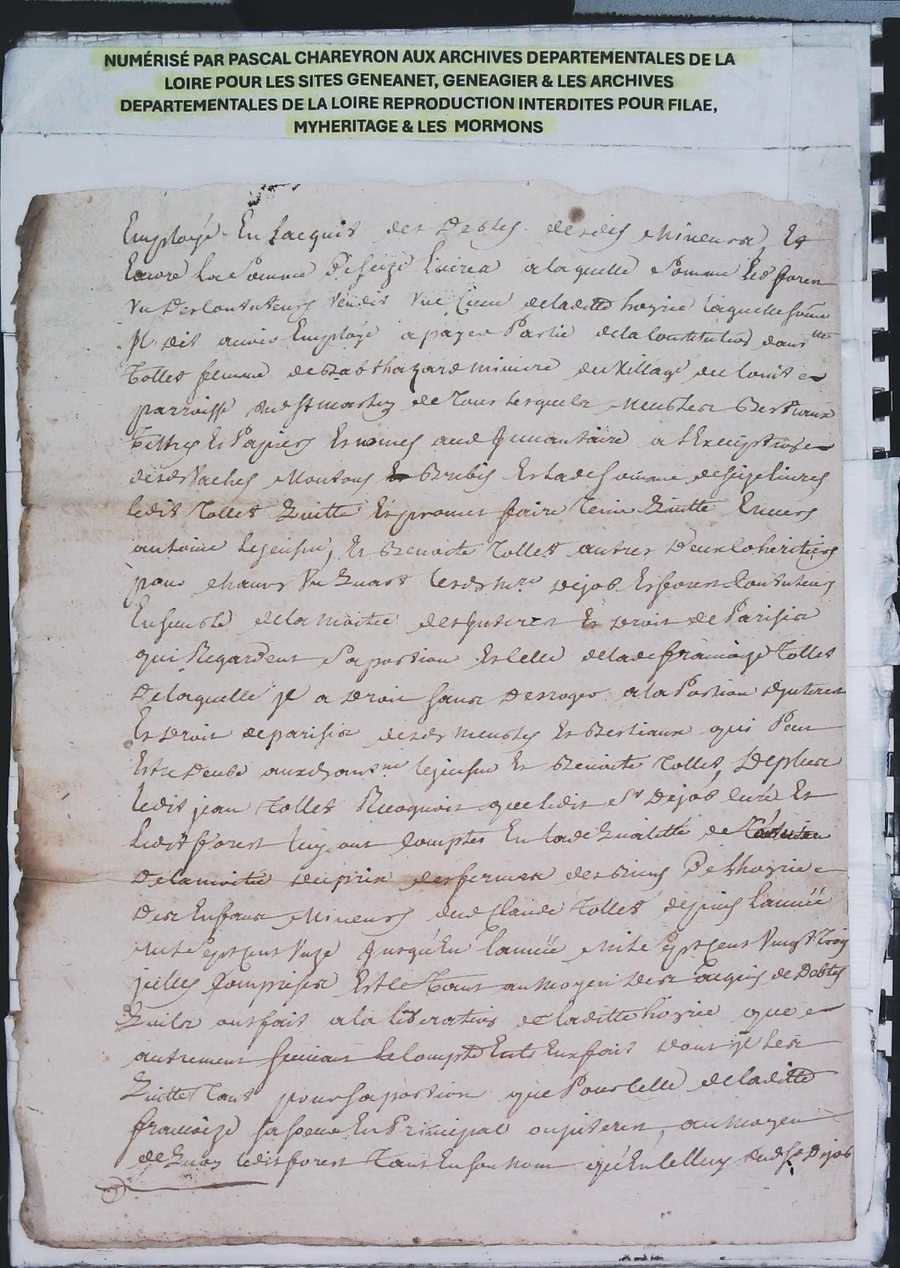 NUMÉRISÉ PAR PASCAL CHAREYRON AUX ARCHIVES DEPARTEMENTALES DE LA
LOIRE POUR LES SITES GENEANET, GENEAGIER & LES ARCHIVES
DEPARTEMENTALES DE LA LOIRE REPRODUCTION INTERDITES POUR FILAE,
MYHERITAGE & LES MORMONS
Employé En Lacquit des Debtes desdits Mineurs, Et
Encore La Somme De seize Livres a laquelle Somme Led forest
vendit une de laditte hoyrie laquelle somme
Il dit avoir Employé a payer Partie de la Constitution
Tollet femme de Balthazard du Village du
parroisse de St martin de
Tittres Et Papiers Et a L'Exception
desd Vaches Moutons Brebis Et lade somme de seize livres
ledit Tollet Quitte Et promet faire tenir Quitte Envers
antoine Lejeune, Et Benoite Tollet autres Deux Coheritiers
pour chacun Un Quart lesd Dejob Et forest
Ensemble de la moitié des Interest Et Droit de Parisis
qui Regardent Sa portion Et Celle de lade françoise Tollet
De laquelle Il a Droit sans Desroger a la Portion D'interest
Et Droit de parisis desds meubles Et Bestiaux qui Peut
Estre Deube auxd lejeune Et Benoite Tollet, De plus
ledit jean Tollet Recognoit que ledit Sr Dejob curé Et
Ledit forest luy ont Comptés En lade Qualitté de
De la moitié du prix des fermes des Biens De L'hoyrie
Des Enfans Mineurs dud Claude Tollet depuis l'année
mile sept cent Unze Jusqu'En l'année mile sept cent Vingt Trois
jcelles Comprises Et le Tout au moyen Des acquis de Debtes
Qu'ils ont fait a la liberation de laditte hoyrie que
autrement suivant le Compte Entr'Eux fait Dont Il les
Quitte Tant pour sa portion que Pour Celle de laditte
françoise sa soeur En Principal ou jnterest, au moyen
de Quoy ledit forest Tant En son nom qu'En Celluy dud Sr Dejob